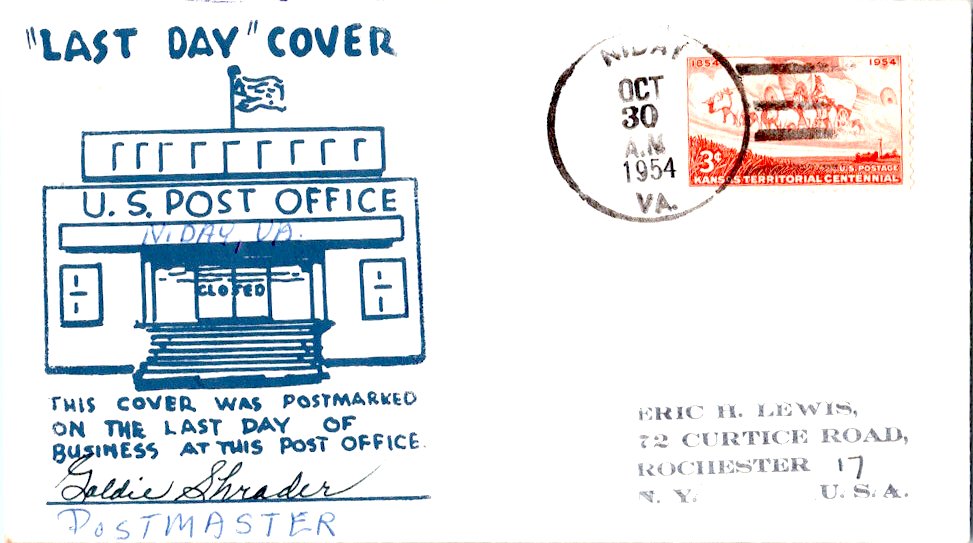 "LAST DAY" COVER
U. S. POST OFFICE
NIDAY, VA.
CLOSED
THIS COVER WAS POSTMARKED
ON THE LAST DAY OF
BUSINESS AT THIS POST OFFICE.
Goldie Shrader
POSTMASTER
NIDAY
OCT
30
A.M
1954
VA.
1854 1954
3¢
U.S. POSTAGE
KANSAS TERRITORIAL CENTENNIAL
ERIC H. LEWIS,
72 CURTICE ROAD,
ROCHESTER 17
N. Y. U. S. A.